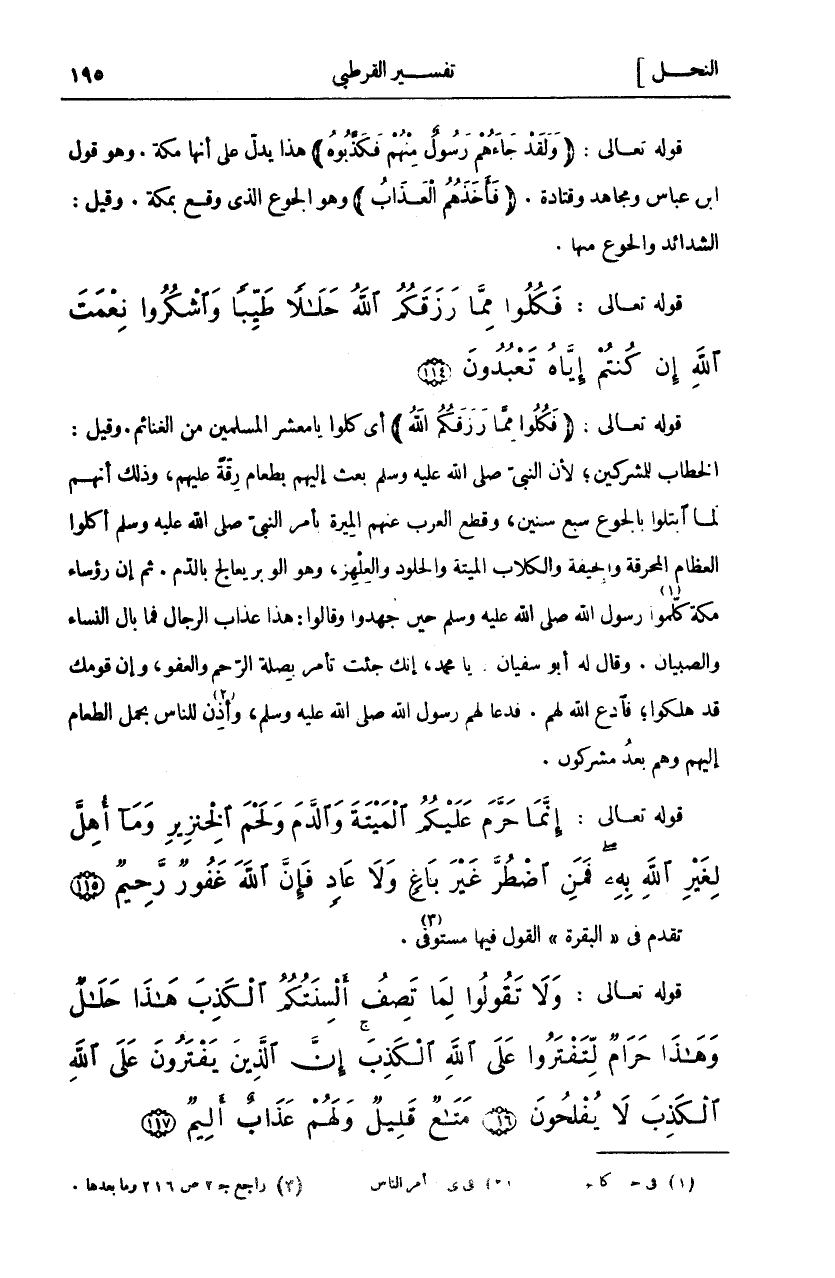 النحل ] تفسير القرطبي ١٩٥
قوله تعالى : ﴿ وَلَقَدْ جَاءَهُمْ رَسُولٌ مِنْهُمْ فَكَذَّبُوهُ ﴾ هذا يدلّ على أنها مكة . وهو قول
ابن عباس ومجاهد وقتادة . ﴿ فَأَخَذَهُمُ الْعَذَابُ ﴾ وهو الجوع الذى وقع بمكة . وقيل :
الشدائد والجوع منها .
قوله تعالى : فَكُلُوا مِمَّا رَزَقَكُمُ ٱللَّهُ حَلَـٰلًا طَيِّبًا وَٱشْكُرُوا نِعْمَتَ
ٱللَّهِ إِن كُنتُمْ إِيَّاهُ تَعْبُدُونَ ١١٤
قوله تعالى : ﴿ فَكُلُوا مِمَّا رَزَقَكُمُ اللَّهُ ﴾ أى كلوا يامعشر المسلمين من الغنائم . وقيل :
الخطاب للمشركين؛ لأن النبيّ صلى الله عليه وسلم بعث إليهم بطعام رِقّةً عليهم، وذلك أنهم
لما ٱبتلوا بالجوع سبع سنين، وقطع العرب عنهم المِيرة بأمر النبيّ صلى الله عليه وسلم أكلوا
العظام المحرقة والجيفة والكلاب الميتة والجلود والعِلْهِز، وهو الوبر يعالج بالدّم . ثم إن رؤساء
مكة كلّموا (١) رسول الله صلى الله عليه وسلم حين جُهدوا وقالوا : هذا عذاب الرجال فما بال النساء
والصبيان . وقال له أبو سفيان . يا محمد، إنك جئت تأمر بصلة الرّحم والعفو، وإن قومك
قد هلكوا؛ فٱدع الله لهم . فدعا لهم رسول الله صلى الله عليه وسلم، وأذِن (٢) للناس بحمل الطعام
إليهم وهم بعدُ مشركون .
قوله تعالى : إِنَّمَا حَرَّمَ عَلَيْكُمُ ٱلْمَيْتَةَ وَٱلدَّمَ وَلَحْمَ ٱلْخِنزِيرِ وَمَآ أُهِلَّ
لِغَيْرِ ٱللَّهِ بِهِۦ فَمَنِ ٱضْطُرَّ غَيْرَ بَاغٍ وَلَا عَادٍ فَإِنَّ ٱللَّهَ غَفُورٌ رَّحِيمٌ ١١٥
تقدم فى « البقرة » القول فيها مستوفًى (٣) .
قوله تعالى : وَلَا تَقُولُوا لِمَا تَصِفُ أَلْسِنَتُكُمُ ٱلْكَذِبَ هَـٰذَا حَلَـٰلٌ
وَهَـٰذَا حَرَامٌ لِّتَفْتَرُوا عَلَى ٱللَّهِ ٱلْكَذِبَ إِنَّ ٱلَّذِينَ يَفْتَرُونَ عَلَى ٱللَّهِ
ٱلْكَذِبَ لَا يُفْلِحُونَ ١١٦ مَتَـٰعٌ قَلِيلٌ وَلَهُمْ عَذَابٌ أَلِيمٌ ١١٧
(١) فى (٢) فى ى أمر الناس (٣) راجع جـ ٢ ص ٢١٦ وما بعدها .